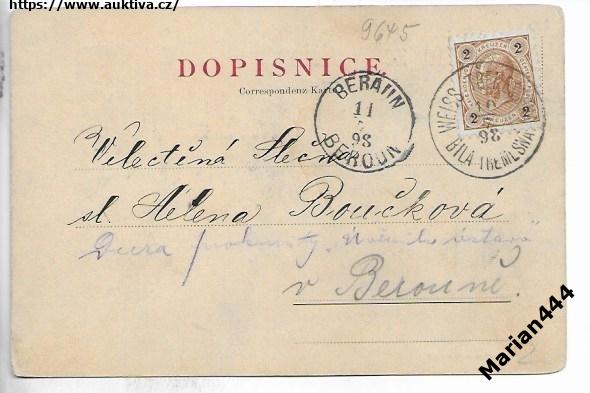 https://www.auktiva.cz/
9645
DOPISNICE.
Correspondenz-Karte
2 KREUZER 2
2 2
BERAUN
11
98
BEROUN
WEISS
98
BÍLÁ TŘEMEŠNÁ
Velectěná Slečna
sl. Helena Boučková
Dcera
v Berouně.
Marian444